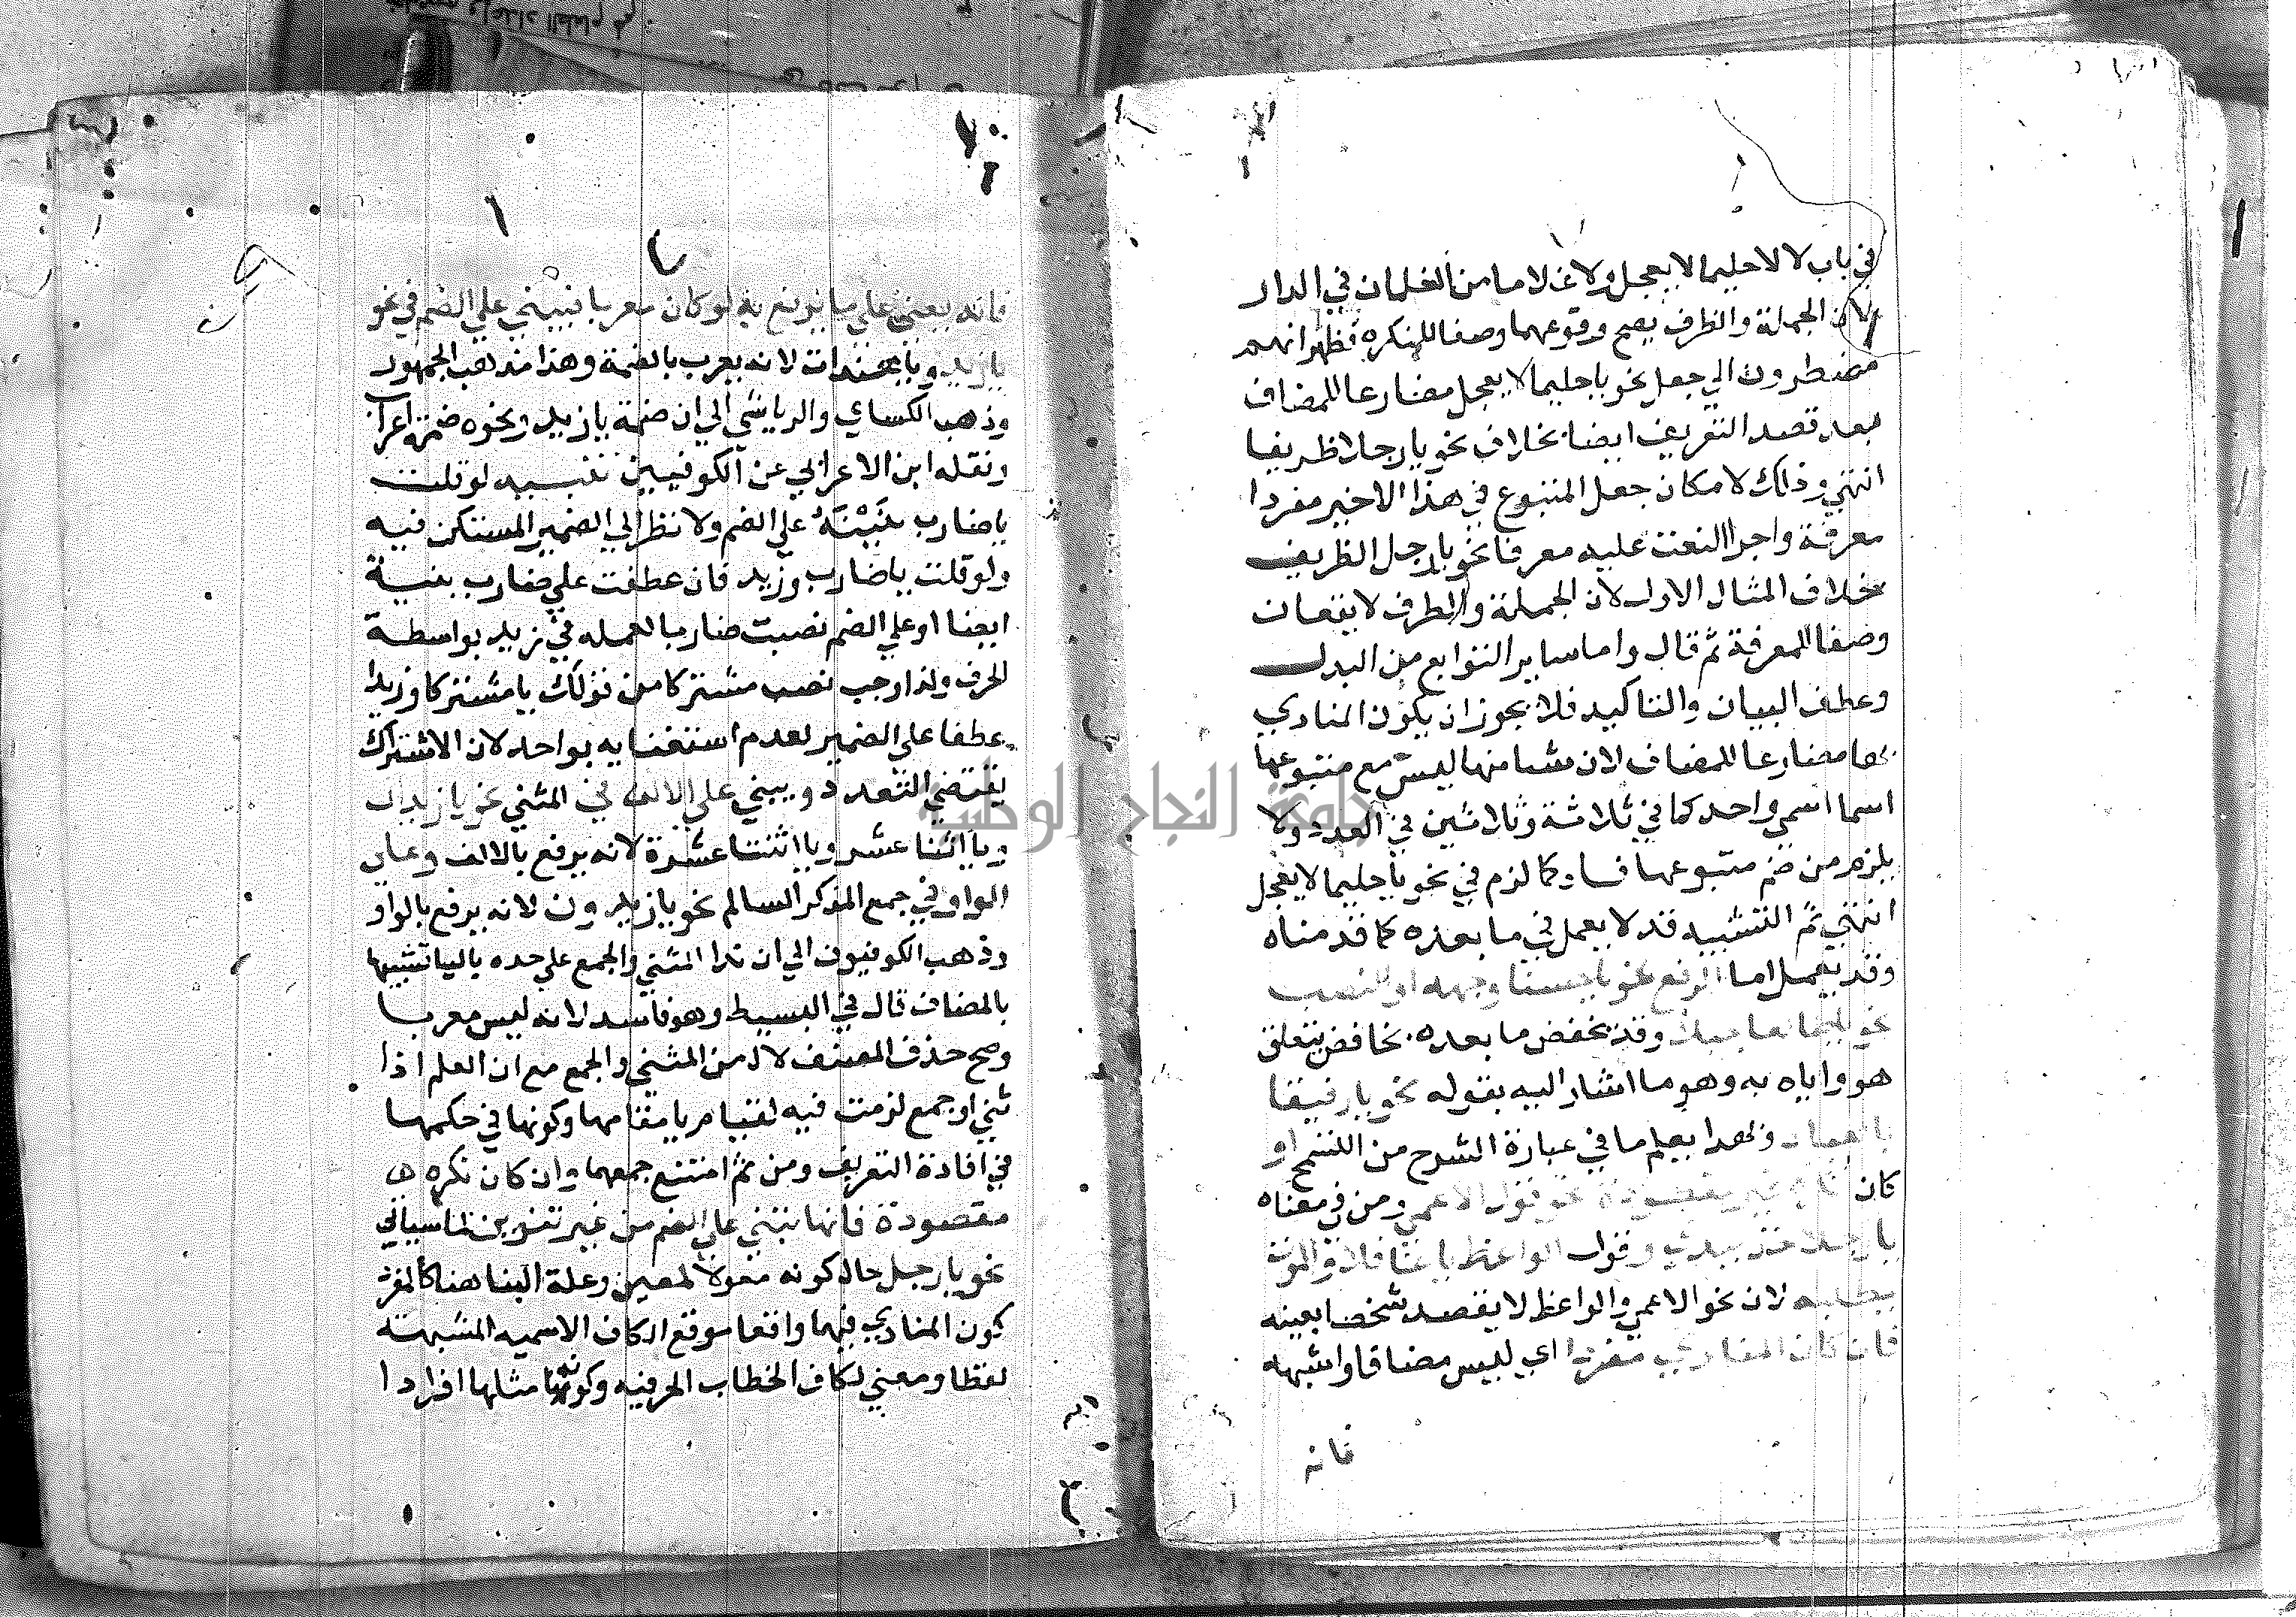 في باب لا لا حليما لا يعجل ولا غلاما من الغلمان في الدار
لان الجملة والظرف يصح وقوعهما وصفا للنكره فظهر انهم
مضطرون الي جعل نحو يا حليما لا يعجل مضارعا للمضاف
بعد قصد التعريف ايضا بخلاف نحو يا رجلا ظريفا
انتهي وذلك لامكان جعل المتبوع في هذا الاخير مفردا
معرفة واجرا النعت عليه معرفا نحو يا رجل الظريف
بخلاف المثال الاول لان الجملة والظرف لا يقعان
وصفا للمعرفة ثم قال واما ساير التوابع من البدل
وعطف البيان والتاكيد فلا يجوز ان يكون المنادي
بها مضارعا للمضاف لان شيا منها ليس مع متبوعها
اسما لشي واحد كما في ثلاثة وثلاثين في العدد ولا
يلزم من ضم متبوعها فساد كما لزم في نحو يا حليما لا يعجل
انتهي ثم التشبيه قد لا يعمل في ما بعده كما قدمناه
وقد يعمل اما الرفع نحو يا حسنا وجهه او النصب
نحو يا طالعا جبلا وقد يخفض ما بعده بخافض يتعلق
هو واياه به وهو ما اشار اليه بقوله نحو يا رفيقا
بالعباد وبهذا يعلم ما في عبارة الشرح من التسمح او
كان نكرة غير مقصودة نحو قول الاعمي ومن في معناه
يا رجلا خذ بيدي وقول الواعظ يا غافلا والموت
يطلبه لان نحو الاعمي والواعظ لا يقصد شخصا بعينه
فان كان المنادي مفردا اي ليس مضافا ولا شبهه
فانه
فانه يبني علي ما يرفع به لو كان معربا فيبني علي الضم في نحو
يا زيد ويا هندات لانه يعرب بالضمة وهذا مذهب الجمهور
وذهب الكسائ والرياشي الي ان ضمة يا زيد ونحوه ضمة اعراب
ونقله ابن الاعرابي عن الكوفيين تنبيه لو قلت
يا ضارب بنيته علي الضم ولا نظر الي الضمير المستكن فيه
ولو قلت يا ضارب وزيد فان عطفت علي ضارب بنيته
ايضا او علي الضم نصبت ضاربا لعمله في زيد بواسطة
الحرف ولذا وجب نصب مشتركا من قولك يا مشتركا وزيدا
عطفا علي الضمير لعدم استغنايه بواحد لان الاشتراك
يقتضي التعدد ويبني علي الالف في المثني نحو يا زيدان
ويا اثنا عشر ويا اثنتا عشرة لانه يرفع بالالف وعلي
الواو في جمع المذكر السالم نحو يا زيدون لانه يرفع بالواو
وذهب الكوفيون الي ان ندا المثني والجمع علي حده باليا تشبيها
بالمضاف قال في البسيط وهو فاسد لانه ليس معربا
وصح حذف المصنف لال من المثني والجمع مع ان العلم اذا
ثني او جمع لزمت فيه لقيام يا مقامها وكونها في حكمها
في افادة التعريف ومن ثم امتنع جمعهما وان كان نكره
مقصودة فانها تبني علي الضم من غير تنوين لما سيالي
نحو يا رجل حال كونه مقولا لمعين وعلة البنا هنا كالمفرد
كون المنادي فيهما واقعا موقع الكاف الاسميه المشبهة
لفظا ومعني لكاف الخطاب الحرفيه وكونها مثلها افرادا
جامعة النجاح الوطنية